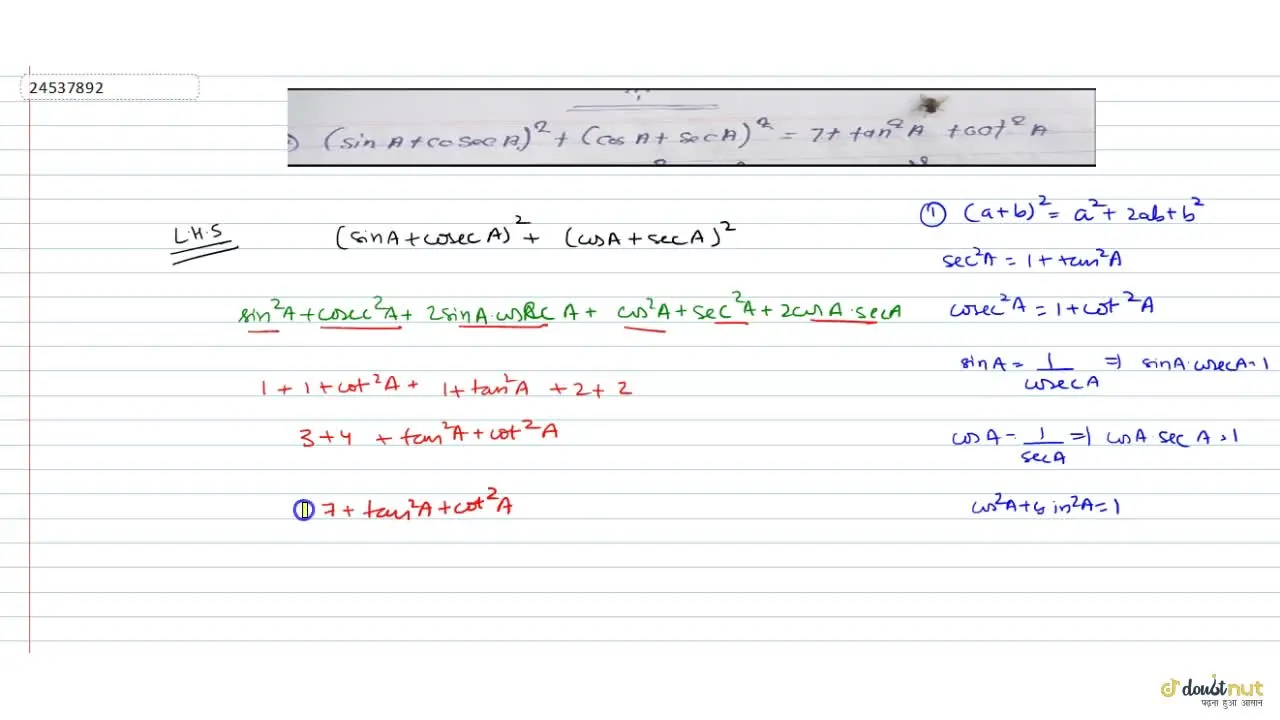 24537892
(sin A + cosec A)² + (cos A + sec A)² = 7 + tan² A + cot² A
L.H.S (sinA + cosec A)² + (cosA + sec A)²
sin²A + cosec²A + 2sinA.cosec A + cos²A + sec²A + 2cosA.secA
1 + 1 + cot²A + 1 + tan²A + 2 + 2
3 + 4 + tan²A + cot²A
7 + tan²A + cot²A
① (a+b)² = a² + 2ab + b²
sec²A = 1 + tan²A
cosec²A = 1 + cot²A
sinA = 1/cosecA ⇒ sinA.cosecA = 1
cosA = 1/secA ⇒ cosA.sec A = 1
cos²A + sin²A = 1
doubtnut
पढ़ना हुआ आसान